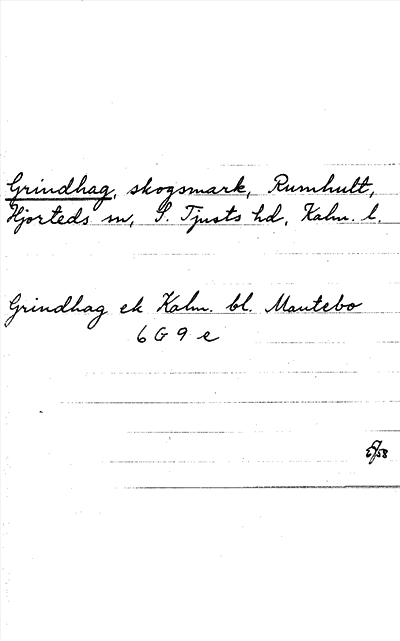 Grindhag, skogsmark, Rumhult,
Hjorteds sn, S. Tjusts hd, Kalm. l.
Grindhag ek Kalm. bl. Mantebo
6 G 9 e